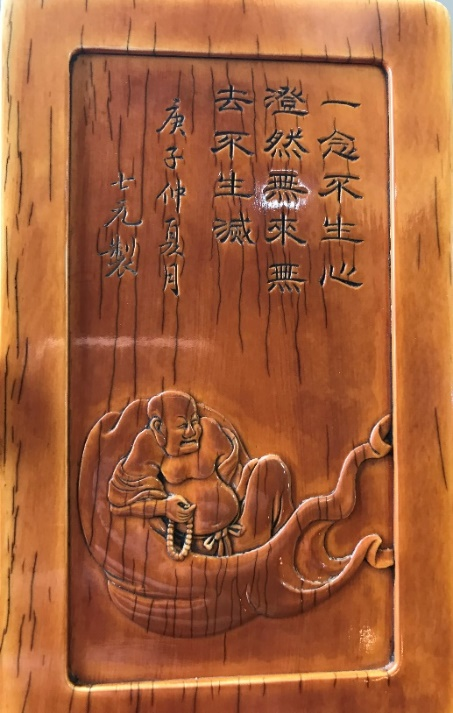 一念不生心
澄然無來無
去不生滅
庚子仲夏月
七元製